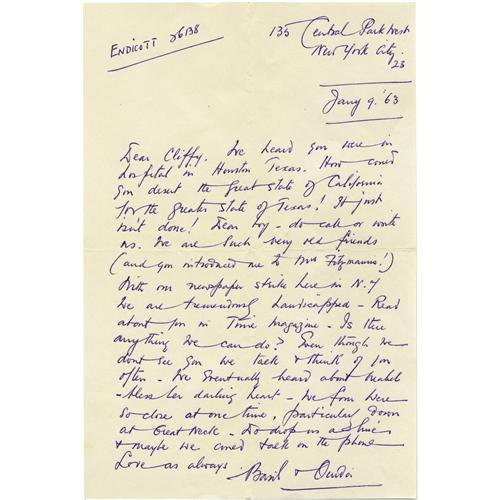 ENDICOTT 26138
135 Central Park West
New York City.
23
Jany 9. '63
Dear Cliffy. We heard you were in
hospital in Houston Texas. How could
you desert the Great State of California
for the greater State of Texas! It just
isn't done! Dear boy - do call or write
us. We are such very old friends
(and you introduced me to Mrs Fitzmaurice!)
With our newspaper strike here in N.Y
We are tremendously handicapped - Read
about you in Time Magazine - Is there
anything we can do? Even though we
dont see you we talk & think of you
often - We eventually heard about Mabel
- bless her darling heart - We four were
so close at one time, particular down
at Great Neck - Do drop us a line
& maybe we could talk on the phone
Love as always.
Basil & Ouida